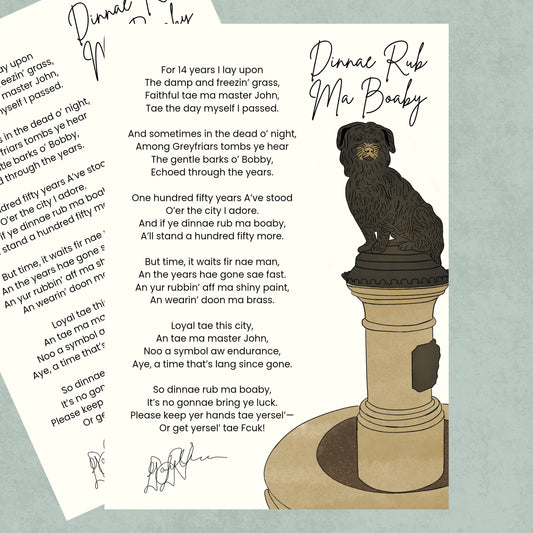 Dinnae Rub
Ma Boaby
For 14 years I lay upon
The damp and freezin’ grass,
Faithful tae ma master John,
Tae the day myself I passed.
And sometimes in the dead o’ night,
Among Greyfriars tombs ye hear
The gentle barks o’ Bobby,
Echoed through the years.
One hundred fifty years A’ve stood
O’er the city I adore.
And if ye dinnae rub ma boaby,
A’ll stand a hundred fifty more.
But time, it waits fir nae man,
An the years hae gone sae fast.
An yur rubbin’ aff ma shiny paint,
An wearin’ doon ma brass.
Loyal tae this city,
An tae ma master John,
Noo a symbol aw endurance,
Aye, a time that’s lang since gone.
So dinnae rub ma boaby,
It’s no gonnae bring ye luck.
Please keep yer hands tae yersel’—
Or get yersel’ tae Fcuk!
Dinnae Rub
Ma Boaby
lay upon
eezin’ grass,
master John,
myself I passed.
s in the dead o’ night,
friars tombs ye hear
le barks o’ Bobby,
d through the years.
ndred fifty years A’ve stood
O’er the city I adore.
if ye dinnae rub ma boa
stand a hundred fifty mor
But time, it waits fir nae
An the years hae gone sa
An yur rubbin’ aff ma shin
An wearin’ doon ma
Loyal tae this
An tae ma ma
Noo a symbol aw
Aye, a time that’s la
So dinnae
It’s no gon
Please keep
Or get